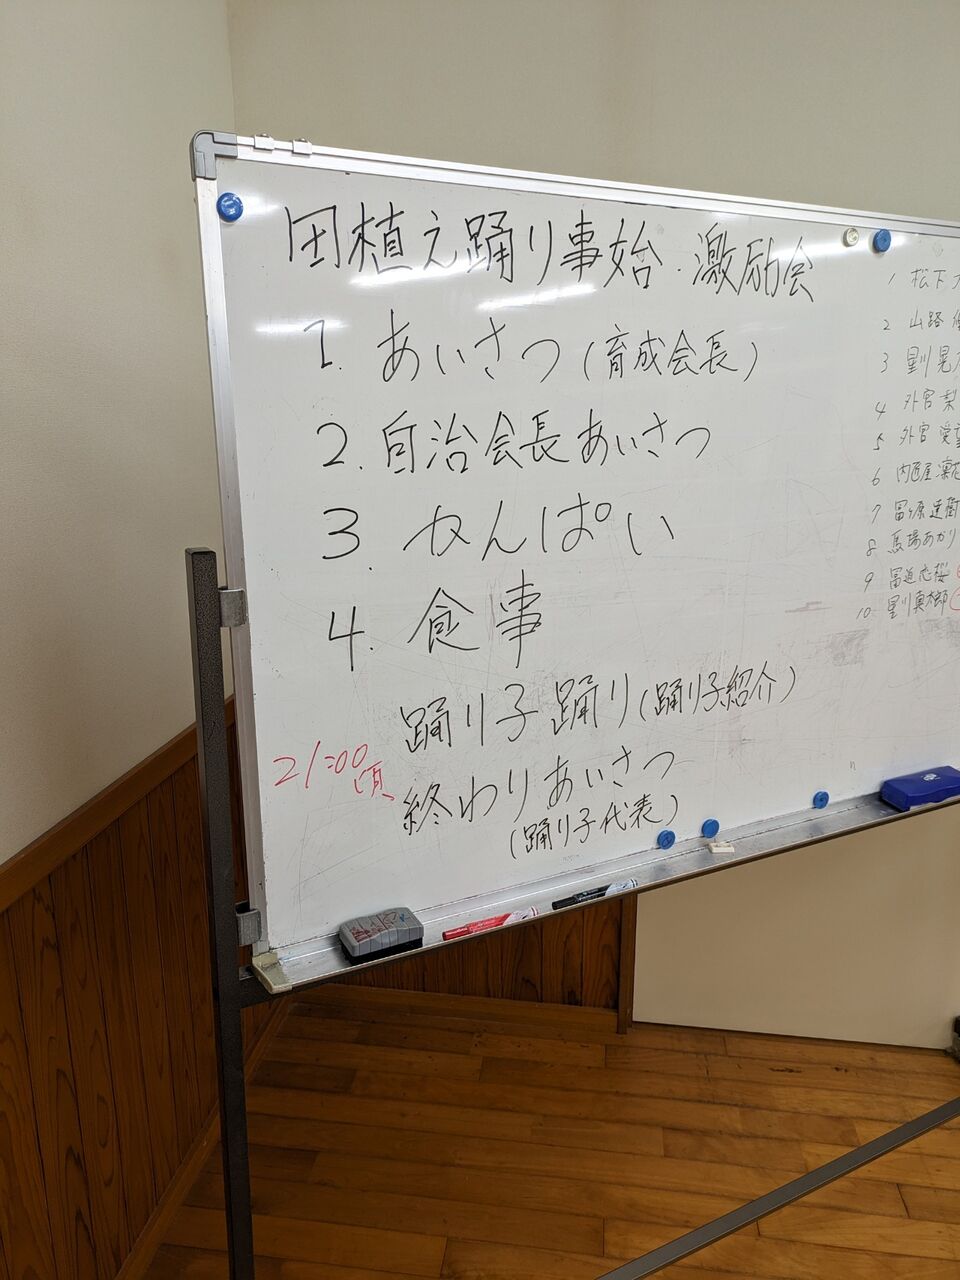 田植え踊り事始・激励会
1. あいさつ(育成会長)
2. 自治会長あいさつ
3. かんぱい
4. 食事
踊り子踊り(踊り子紹介)
21:00頃
終わりあいさつ
(踊り子代表)
1 松下
2 山路
3 星川 晃
4 外宮 梨
5 外宮 愛
6 内匠屋 凜花
7 冨ヶ原
8 馬場あかり
9 冨迫 恋桜
10 星川真太郎